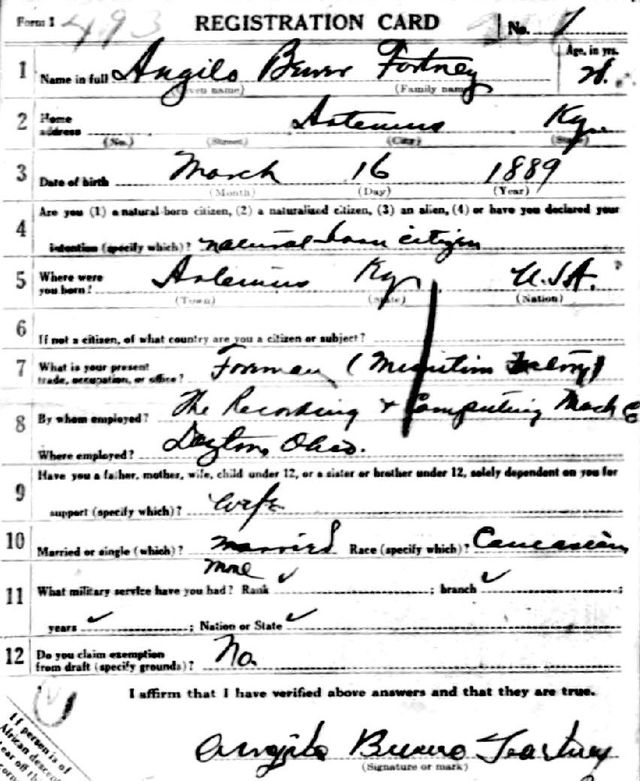 Form 1 493 REGISTRATION CARD No. 1
1 Name in full Angilo Fortney Age, in yrs. 28
(Given name) (Family name)
2 Home address Artemus Ky.
(No.) (Street) (City) (State)
3 Date of birth March 16 1889
(Month) (Day) (Year)
4 Are you (1) a natural-born citizen, (2) a naturalized citizen, (3) an alien, (4) or have you declared your
intention (specify which)? natural-born citizen
5 Where were you born? Artemus Ky. U.S.A.
(Town) (State) (Nation)
6 If not a citizen, of what country are you a citizen or subject?
7 What is your present trade, occupation, or office? Foreman (Munition Factory)
8 By whom employed? The Recording & Computing Mach Co
Where employed? Dayton, Ohio.
9 Have you a father, mother, wife, child under 12, or a sister or brother under 12, solely dependent on you for
support (specify which)? Wife
10 Married or single (which)? Married Race (specify which)? Caucasian
11 What military service have you had? Rank none ; branch ;
years ; Nation or State
12 Do you claim exemption from draft (specify grounds)? No
I affirm that I have verified above answers and that they are true.
If person is of
African descent
tear off
Angilo
(Signature or mark)